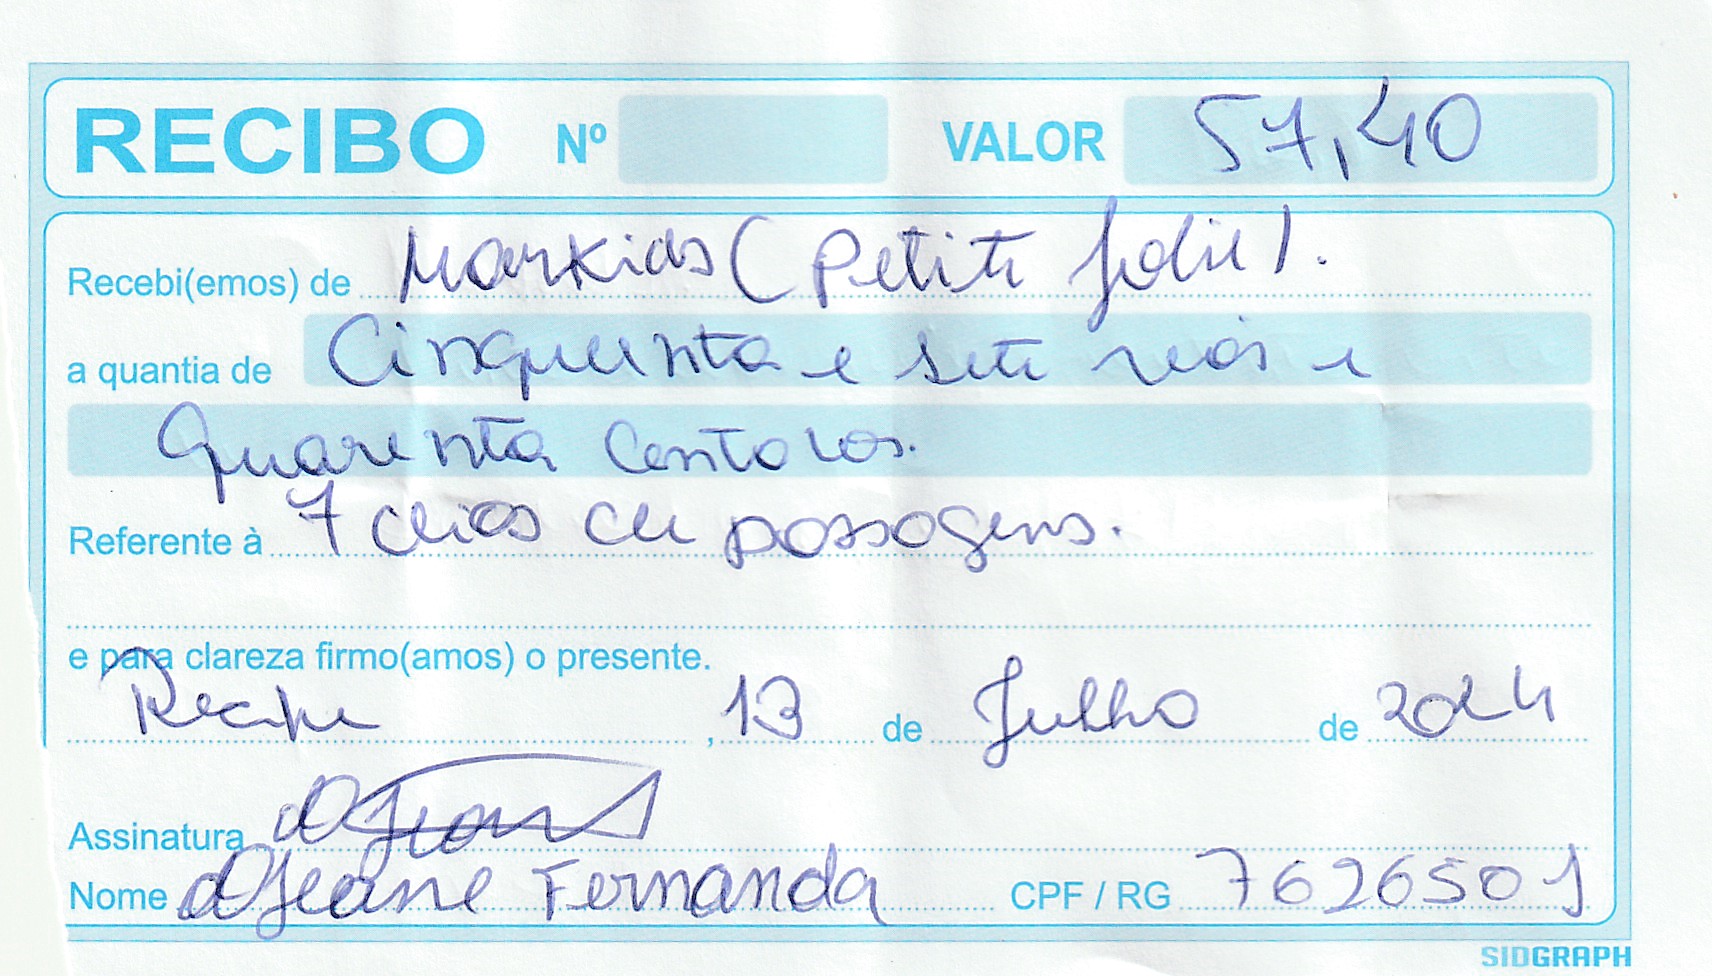 RECIBO Nº VALOR 57,40
Recebi(emos) de Markids (Petite Jolie).
a quantia de Cinquenta e sete reais e
Quarenta Centavos.
Referente à 7 dias de passagens.
e para clareza firmo(amos) o presente.
Recife, 13 de Julho de 2024
Assinatura
Nome Djeane Fernanda CPF / RG 7626501
SIDGRAPH